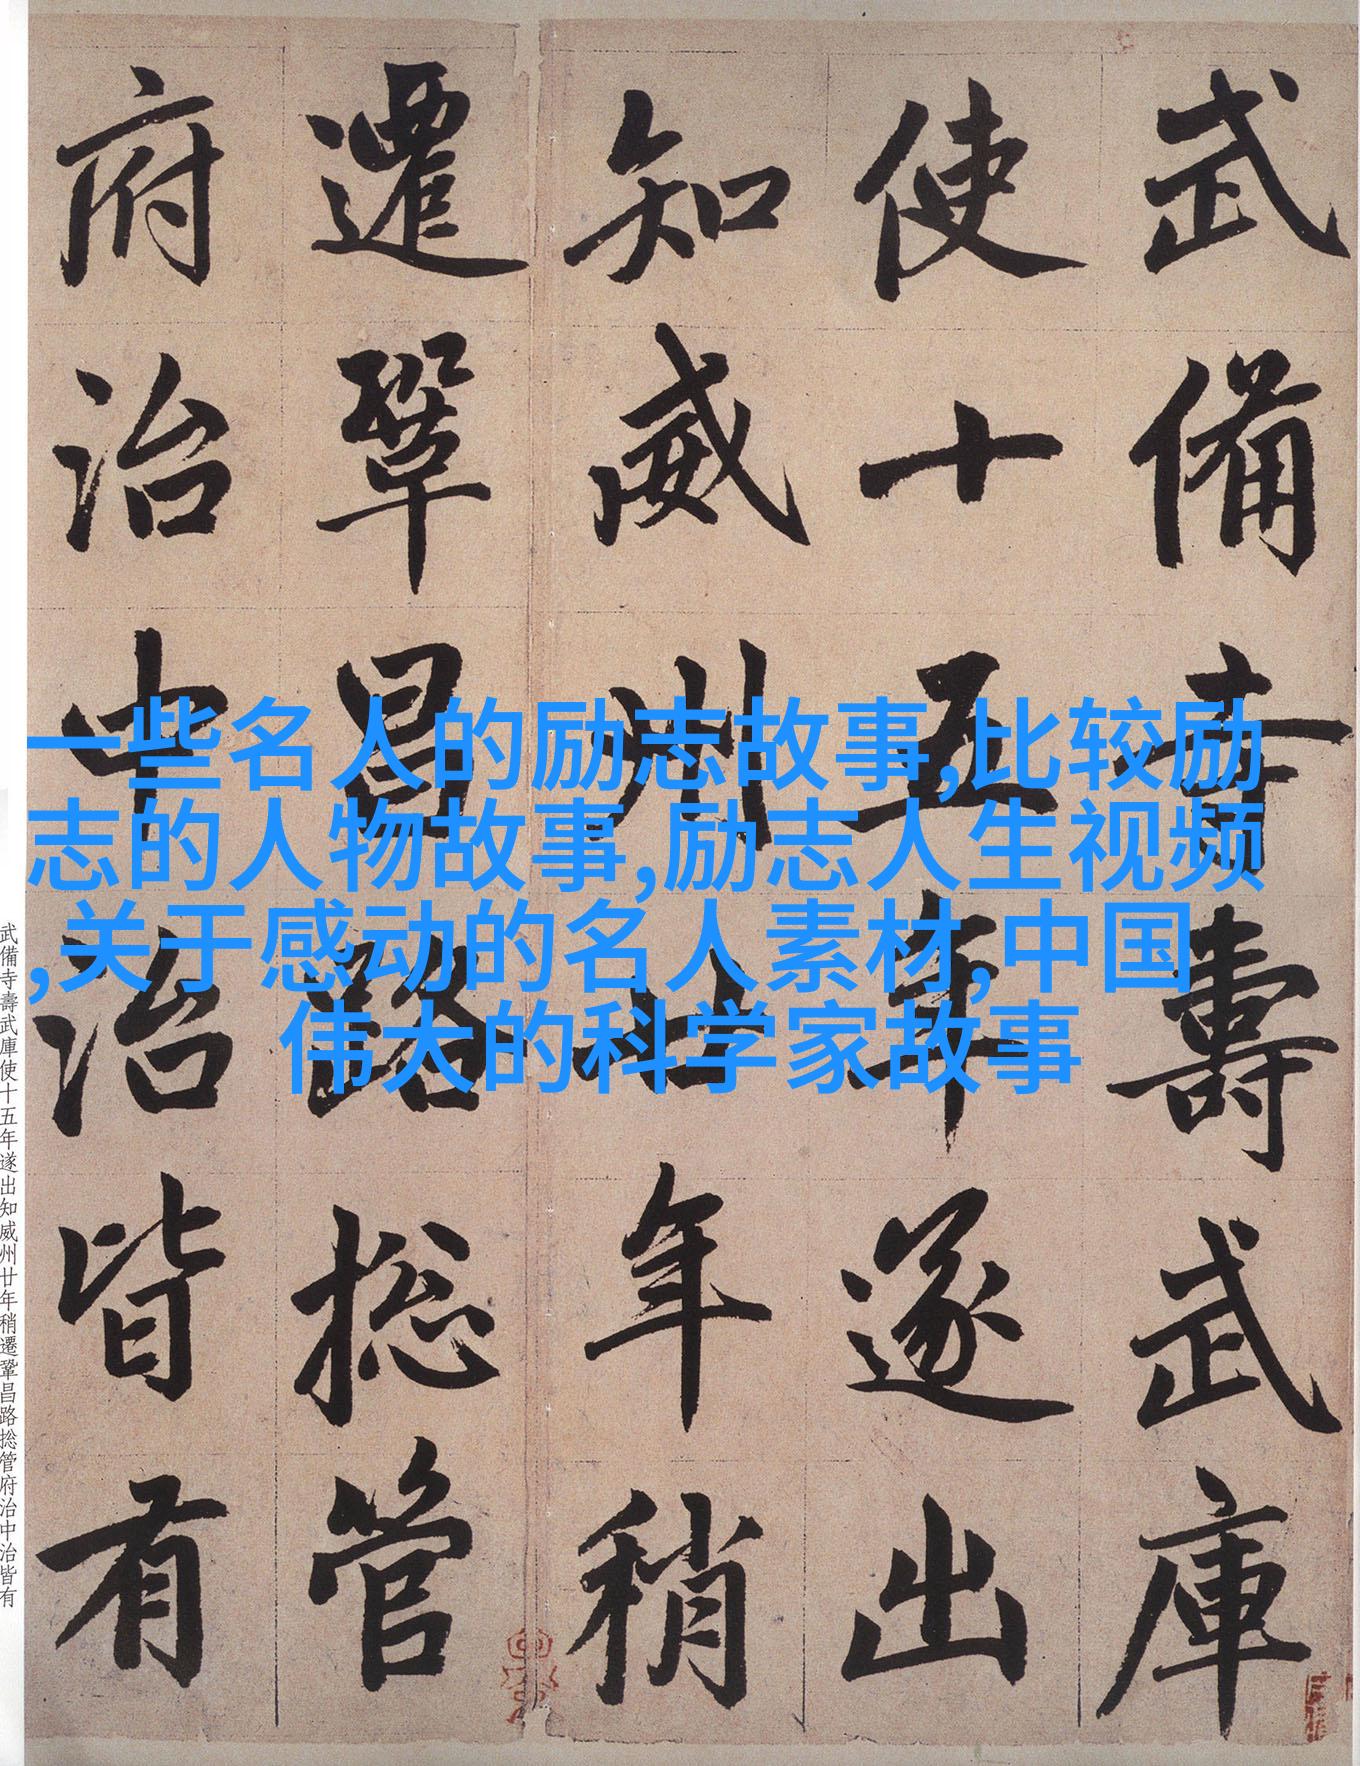 武備寺壽武庫
使十五年遂出
知威州廿年稍
遷鞏昌路捴管
府治中治皆有
一些名人的励志故事,比较励
志的人物故事,励志人生视频
,关于感动的名人素材,中国
伟大的科学家故事
武備寺壽武庫使十五年遂出知威州廿年稍遷鞏昌路捴管府治中治皆有